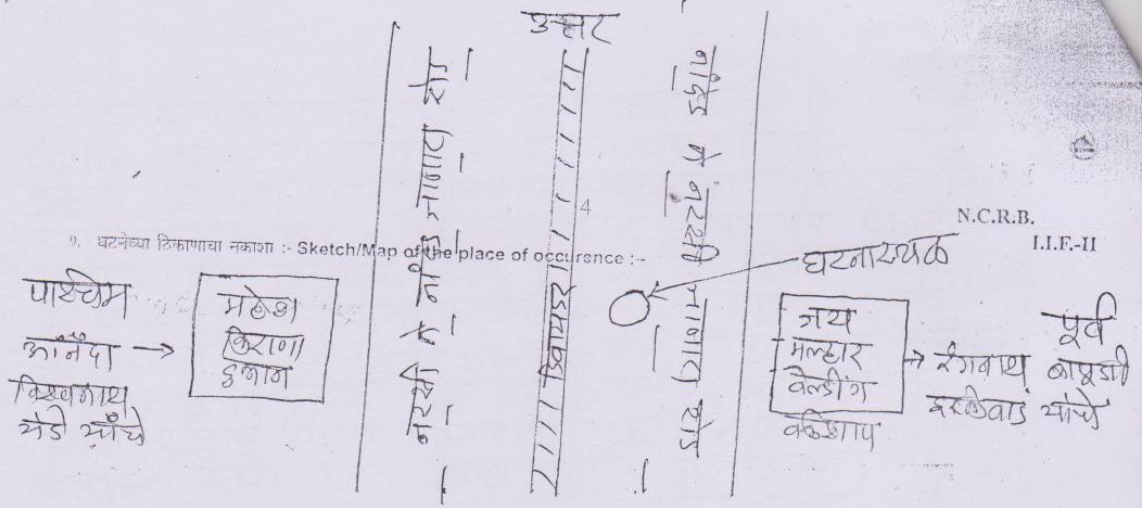 उत्तर
4
N.C.R.B.
I.I.F.-II
९. घटनेच्या ठिकाणाचा नकाशा :- Sketch/Map of the place of occurence :-
घटनास्थळ
पश्चिम
आनंदा
विश्वनाथ
येडे यांचे
महेश
किराणा
दुकान
नरसी ते नांदेड जाणारा रोड
डिवायडर
नांदेड ते नरसी जाणारा रोड
जय
मल्हार
वेल्डींग
वर्कशाप
पूर्व
रंगनाथ बापूजी
यांचे